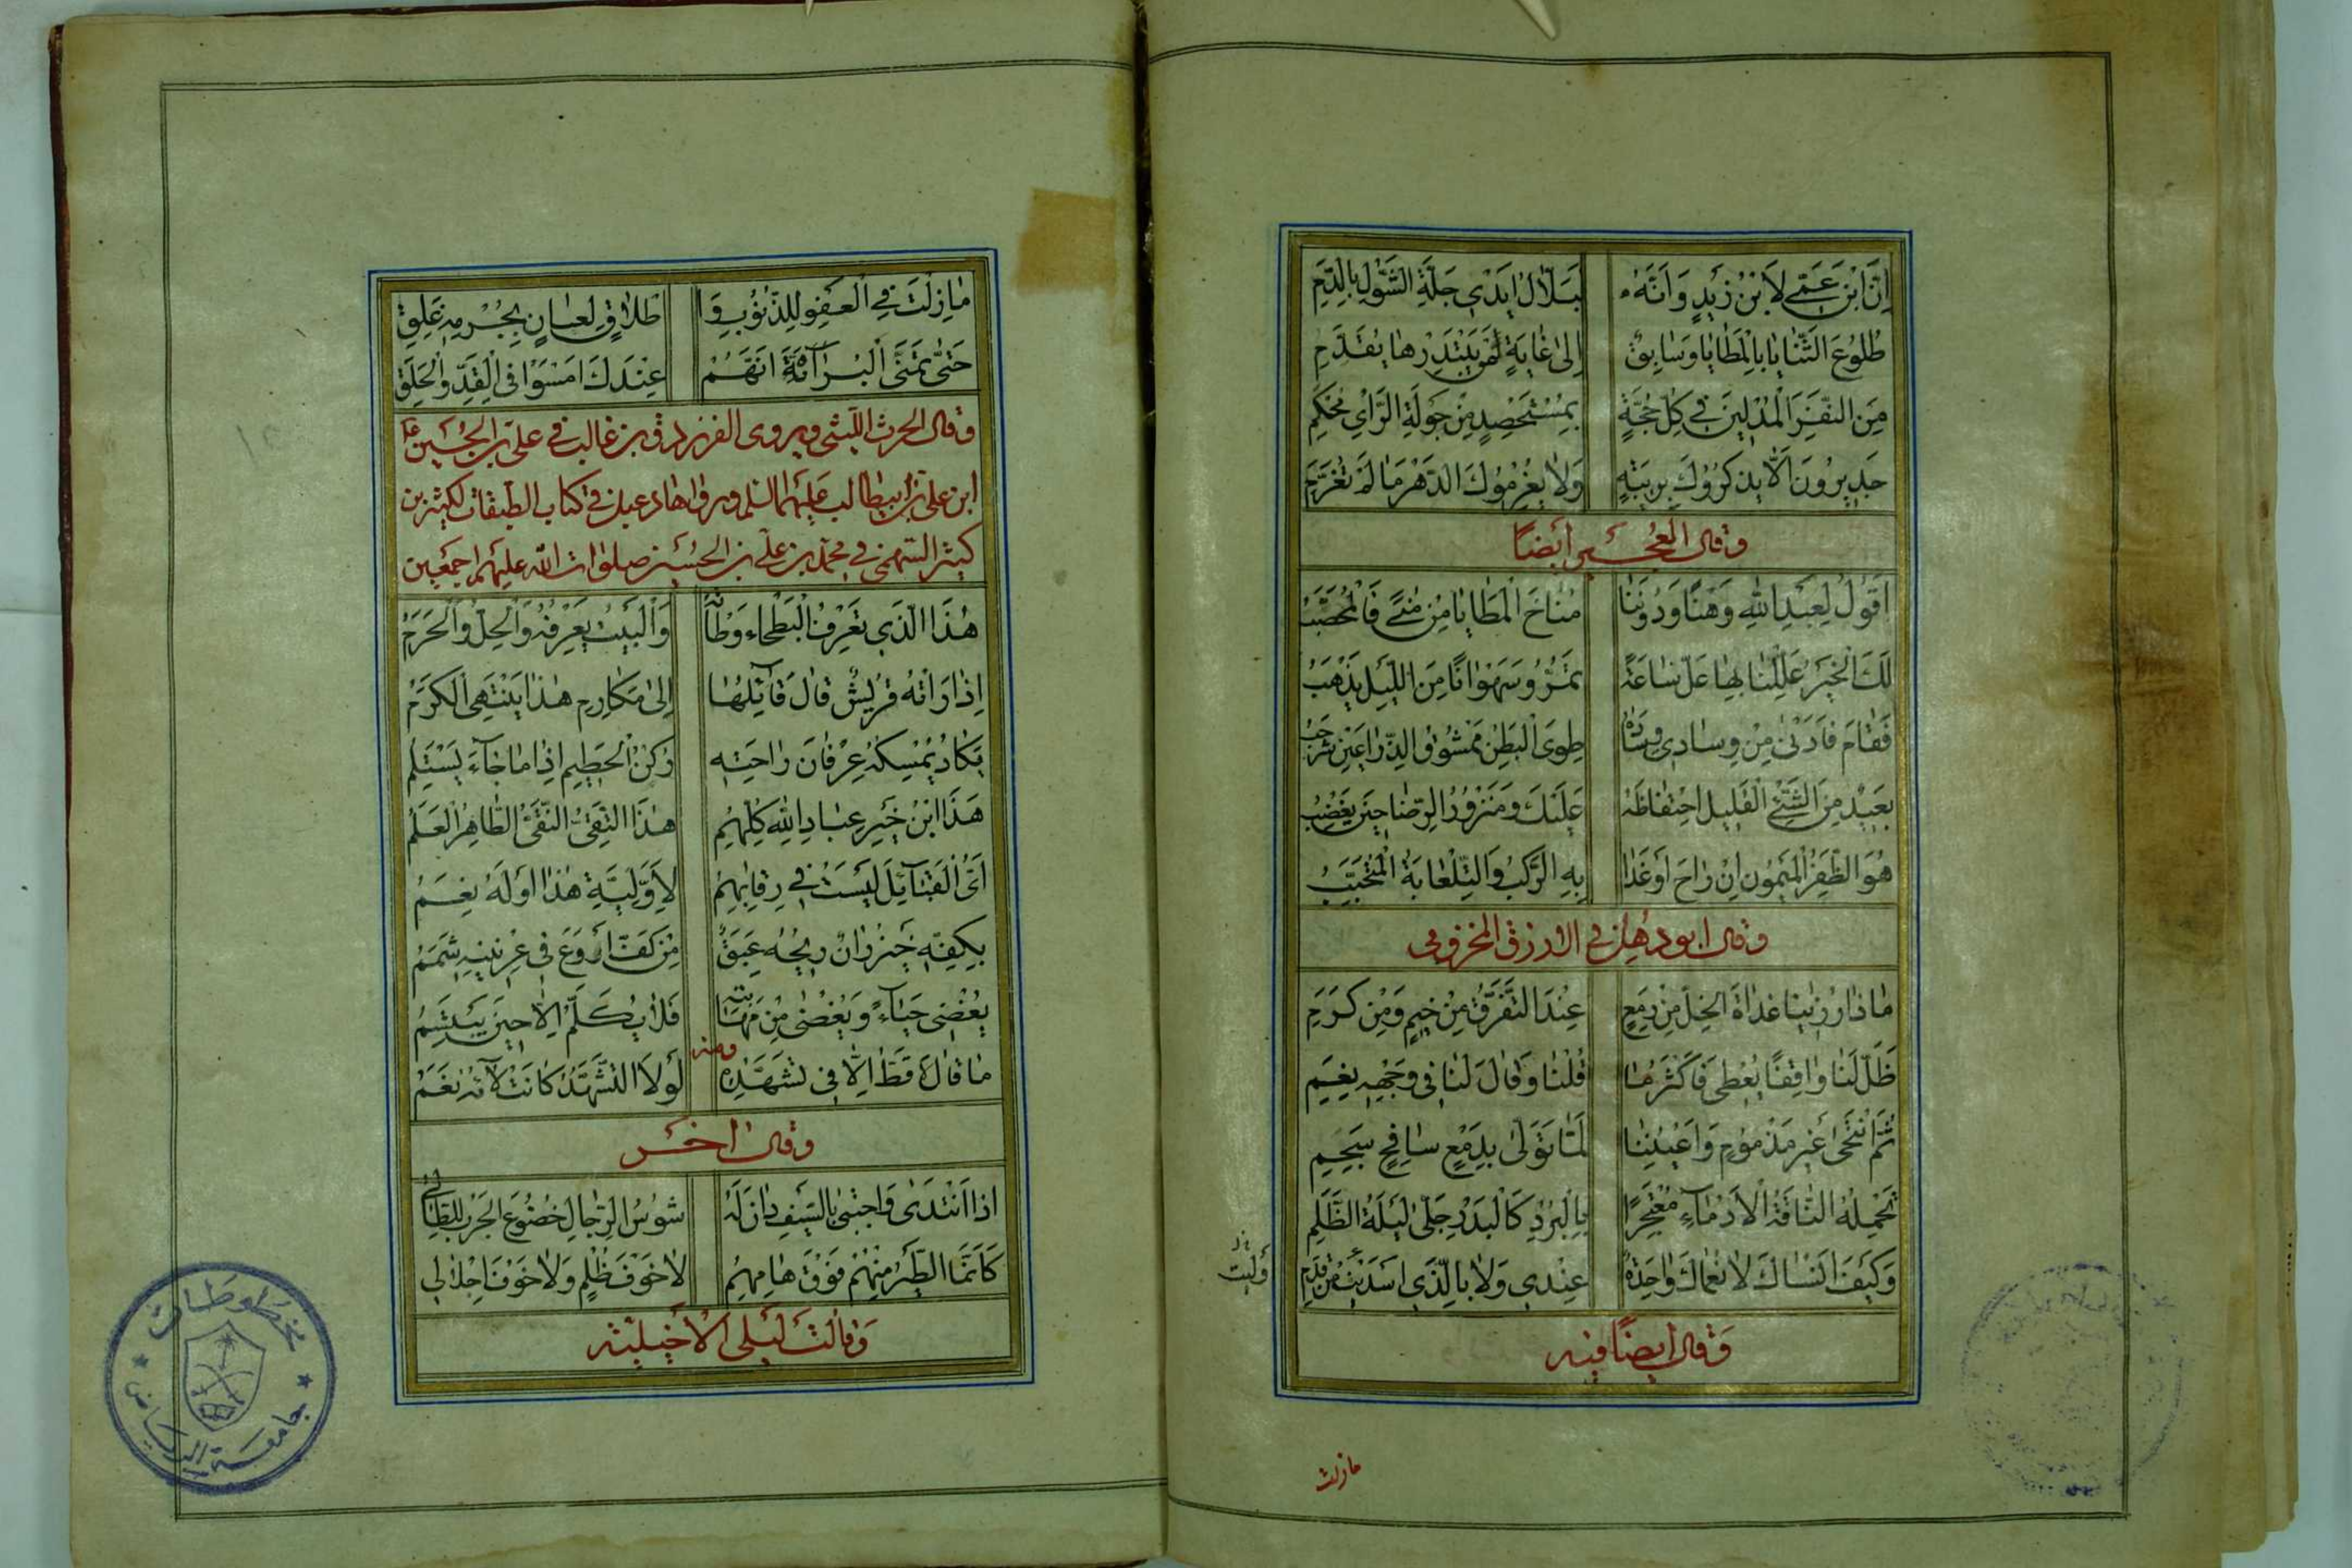 اِنَّ ابْنَ عَمّي لَابْنُ زَيْدٍ وَاَنَّهُ لَبَلَّالُ اَيْدي جِلَّةِ الشَّوْلِ بِالدَّمِ
طُلُوعُ الثَّنَايَا بِالْمَطَايَا وَسَابِقٌ اِلىٰ غَايَةٍ مَنْ يَبْتَدِرْهَا يُقَدَّمِ
مِنَ النَّفَرِ الْمُدْلينَ في كُلِّ حُجَّةٍ بِمُسْتَحْصِدٍ مِنْ جَوْلَةِ الرَّأيِ مُحْكَمِ
جَديرُونَ اَلَّا يَذْكُرُوكَ بِرِيبَةٍ وَلَا يُغْرِمُوكَ الدَّهْرَ مَا لَمْ تُغَرَّمِ
وقال العجير ايضًا
اَقُولُ لِعَبْدِ اللهِ وَهْنًا وَدُونَنَا مُنَاخُ الْمَطَايَا مِنْ مِنًى فَالْمُحَصَّبُ
لَكَ الْخَيْرُ عَلِّلْنَا بِهَا عَلَّ سَاعَةً تَمُرُّ وَسَهْوَانًا مِنَ اللَّيْلِ يَذْهَبُ
فَقَامَ فَاَدْنىٰ مِنْ وِسَادي وِسَادَهُ طَوِى الْبَطْنِ مَمْشُوقُ الذِّرَاعَيْنِ شَرْجَبُ
بَعيدٌ مِنَ الشَّيْءِ الْقَليلِ احْتِفَاظُهُ عَلَيْكَ وَمَنْزُورُ الرِّضَا حينَ يَغْضَبُ
هُوَ الظَّفِرُ الْمَيْمُونُ اِنْ رَاحَ اَوْ غَدَا بِهِ الرَّكْبُ وَالتِّلْعَابَةُ الْمُتَحَبِّبُ
وقال ابو دهبل في الازرق المخزومي
مَاذَا رُزِئْنَا غَدَاةَ الخِلِّ مِنْ رِمَعٍ عِنْدَ التَّفَرُّقِ مِنْ خيمٍ وَمِنْ كَرَمِ
ظَلَّ لَنَا وَاقِفًا يُعْطي فَاَكْثَرُ مَا قُلْنَا وَقَالَ لَنَا في وَجْهِهِ نِعَمِ
ثُمَّ انْتَحىٰ غَيْرَ مَذْمُومٍ وَاَعْيُنُنَا لَمَّا تَوَلّىٰ بِدَمْعٍ سَافِحٍ سَجِمِ
تَحْمِلُهُ النَّاقَةُ الْاَدْمَاءُ مُعْتَجِرًا بِالْبُرْدِ كَالْبَدْرِ جَلّىٰ لَيْلَةَ الظُّلَمِ
وَكَيْفَ اَنْسَاكَ لَا نُعْمَاكَ وَاحِدَةٌ عِنْدي وَلَا بِالَّذي اَسْدَيْتَ مِنْ قِدَمِ
وَقال ايضًا فيه
مازلت
مَازِلْتَ فِي الْعَفْوِ لِلذُّنُوبِ وَاِ طْلَاقٍ لِعَانٍ بِجُرْمِهِ غَلِقِ
حَتّىٰ تَمَنَّى الْبُرَاةُ اَنَّهُمْ عِنْدَكَ اَمْسَوْا في الْقِدِّ وَالْحَلَقِ
وقال الحرث الليثي ويروى الفرزدق بن غالب في علي بن الحسين
ابن علي بن ابيطالب عليهما السلم ورواها دعبل في كتاب الطبقات لكثير بن
كثير السهمي في محمد بن علي بن الحسين صلوات الله عليهم اجمعين
هٰذَا الَّذي تَعْرِفُ الْبَطْحَاءُ وَطْأَتَهُ وَالْبَيْتُ يَعْرِفُهُ وَالْحِلُّ وَالْحَرَمُ
اِذَا رَاَتْهُ قُرَيْشٌ قَالَ قَائِلُهَا اِلىٰ مَكَارِمِ هٰذَا يَنْتَهِى الْكَرَمُ
يَكَادُ يُمْسِكُهُ عِرْفَانَ رَاحَتِهِ رُكْنُ الْحَطيمِ اِذَا مَا جَاءَ يَسْتَلِمُ
هٰذَا ابْنُ خَيْرِ عِبَادِ اللهِ كُلِّهِمُ هٰذَا التَّقِيُّ النَّقِيُّ الطَّاهِرُ الْعَلَمُ
اَيُّ الْقَبَائِلِ لَيْسَتْ في رِقَابِهِمُ لِاَوَّلِيَّةِ هٰذَا اَوْ لَهُ نِعَمُ
بِكَفِّهِ خَيْزُرَانٌ ريحُهُ عَبِقٌ مِنْ كَفِّ اَرْوَعَ في عِرْنينِهِ شَمَمُ
يُغْضي حَيَاءً وَيُغْضىٰ مِنْ مَهَابَتِهِ فَلَا يُكَلَّمُ اِلَّا حينَ يَبْتَسِمُ
ومنه
مَا قَالَ لَا قَطُّ اِلَّا في تَشَهُّدِهِ لَوْلَا التَّشَهُّدُ كَانَتْ لَاؤُهُ نَعَمُ
وقال اخر
اِذَا انْتَدىٰ وَاحْتَبىٰ بِالسَّيْفِ دَانَ لَهُ شُوسُ الرِّجَالِ خُضُوعَ الْجُرْبِ لِلطَّالي
كَاَنَّمَا الطَّيْرُ مِنْهُمْ فَوْقَ هَامِهِمُ لَا خَوْفَ ظُلْمٍ وَلَا خَوْفَ اِجْلَالِ
وَقالت ليلى الاخيلية
مخطوطات
جامعة الرياض